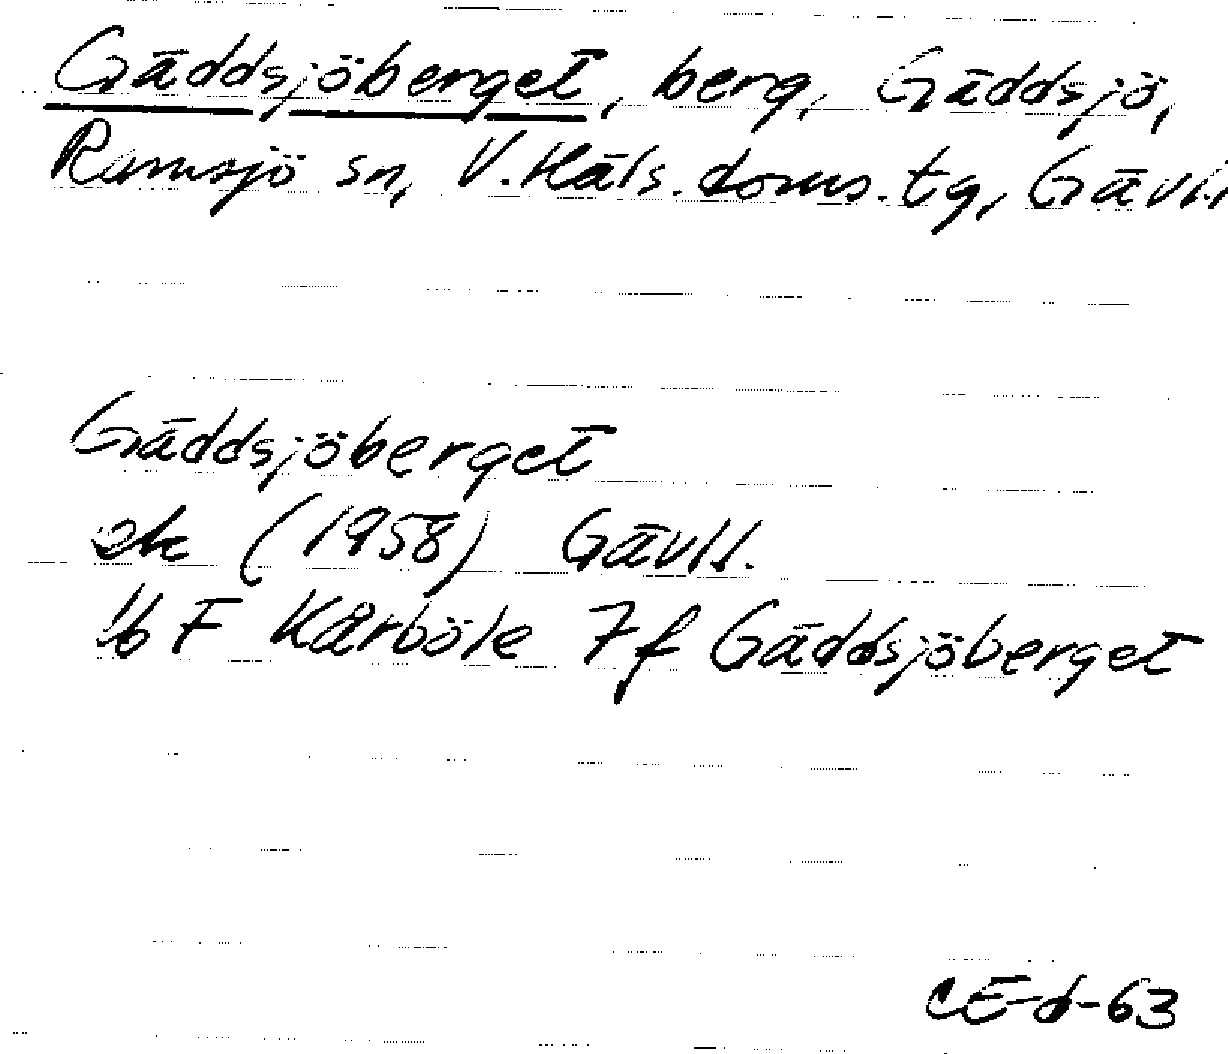 Gäddsjöberget, berg, Gäddsjö,
Ramsjö sn, V. Häls. doms. tg, Gävl.
Gäddsjöberget
ek (1958) Gävll.
16 F Kårböle 7f Gäddsjöberget
CE-d-63